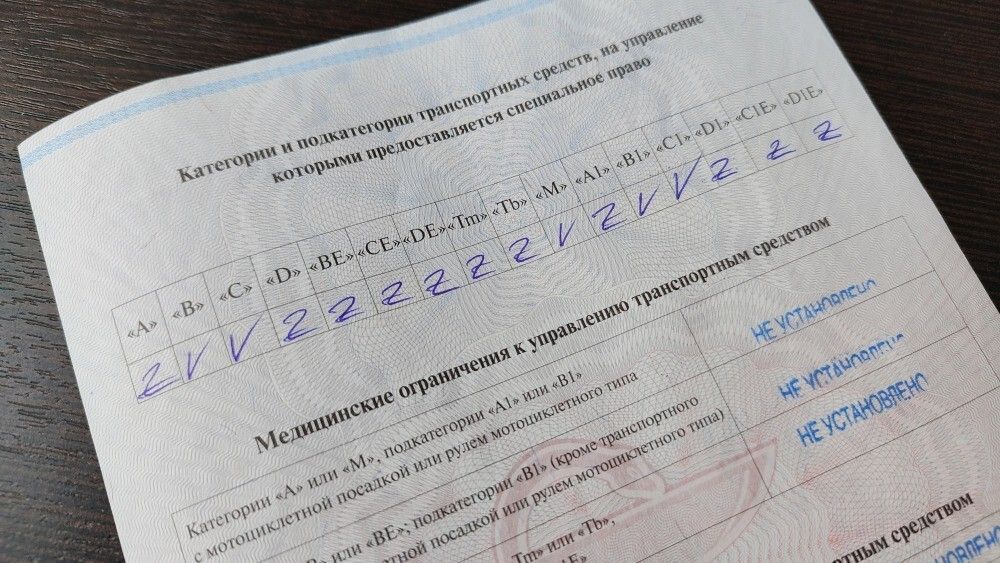 Категории и подкатегории транспортных средств, на управление
которыми предоставляется специальное право
«A» «B» «C» «D» «BE» «CE» «DE» «Tm» «Tb» «M» «A1» «B1» «C1» «D1» «C1E» «D1E»
Z V V Z Z Z Z Z Z V Z V V Z Z Z
Медицинские ограничения к управлению транспортным средством
Категории «A» или «M», подкатегории «A1» или «B1»
с мотоциклетной посадкой или рулем мотоциклетного типа
НЕ УСТАНОВЛЕНО
или «BE»; подкатегории «B1» (кроме транспортного
посадкой или рулем мотоциклетного типа)
НЕ УСТАНОВЛЕНО
Tm» или «Tb»,
НЕ УСТАНОВЛЕНО
средством